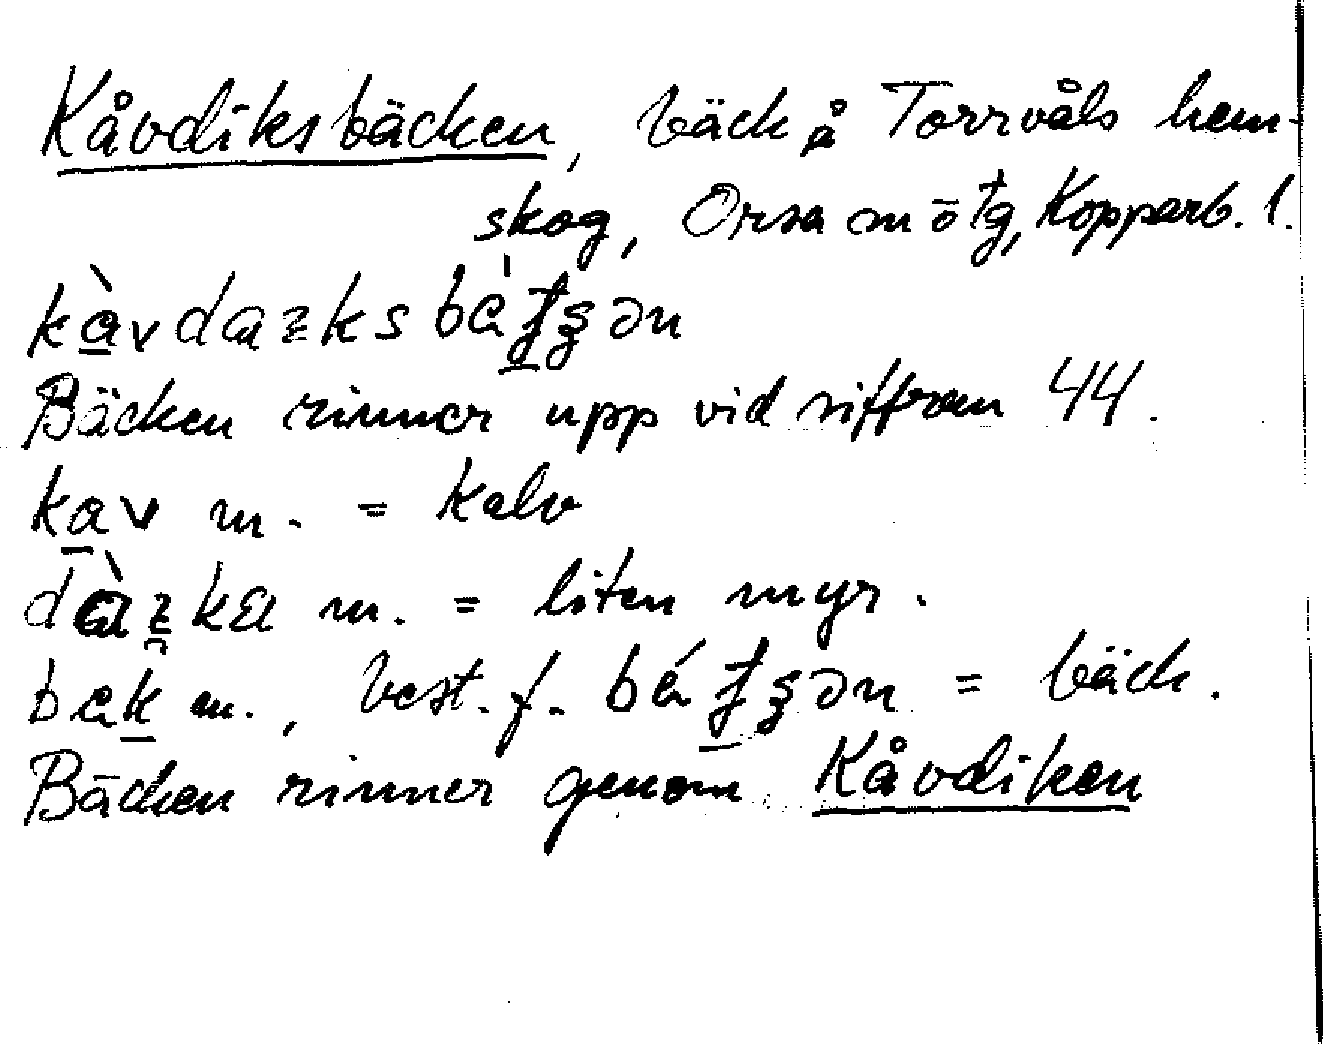 Kåvdiksbäcken, bäck å Torrvåls hem-
skog, Orsa m ö tg, Kopparb. l.
kàvdaɪks bátʂən
Bäcken rinner upp vid siffran 44.
kav m. = kalv
m. = liten myr.
bak m., best. f. = bäck.
Bäcken rinner genom Kåvdiken